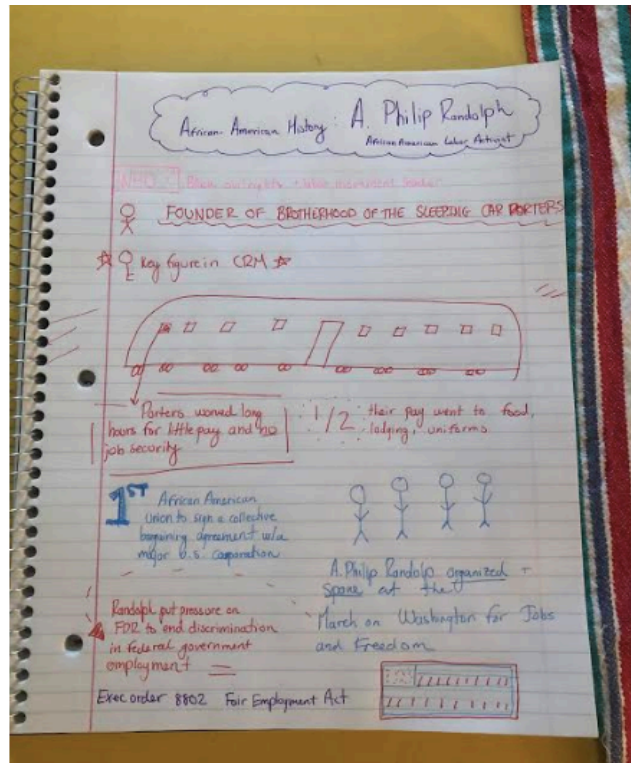 African-American History: A. Philip Randolph
African American Labor Activist
WHO? Black civil rights + labor movement leader
FOUNDER OF BROTHERHOOD OF THE SLEEPING CAR PORTERS
Key figure in CRM
Porters worked long
hours for little pay and no
job security
1/2 their pay went to food,
lodging, uniforms
1ST African American
union to sign a collective
bargaining agreement w/a
major U.S. corporation
A. Philip Randolp organized +
spoke at the
March on Washington for Jobs
and Freedom
Randolph put pressure on
FDR to end discrimination
in federal government
employment
Exec order 8802 Fair Employment Act